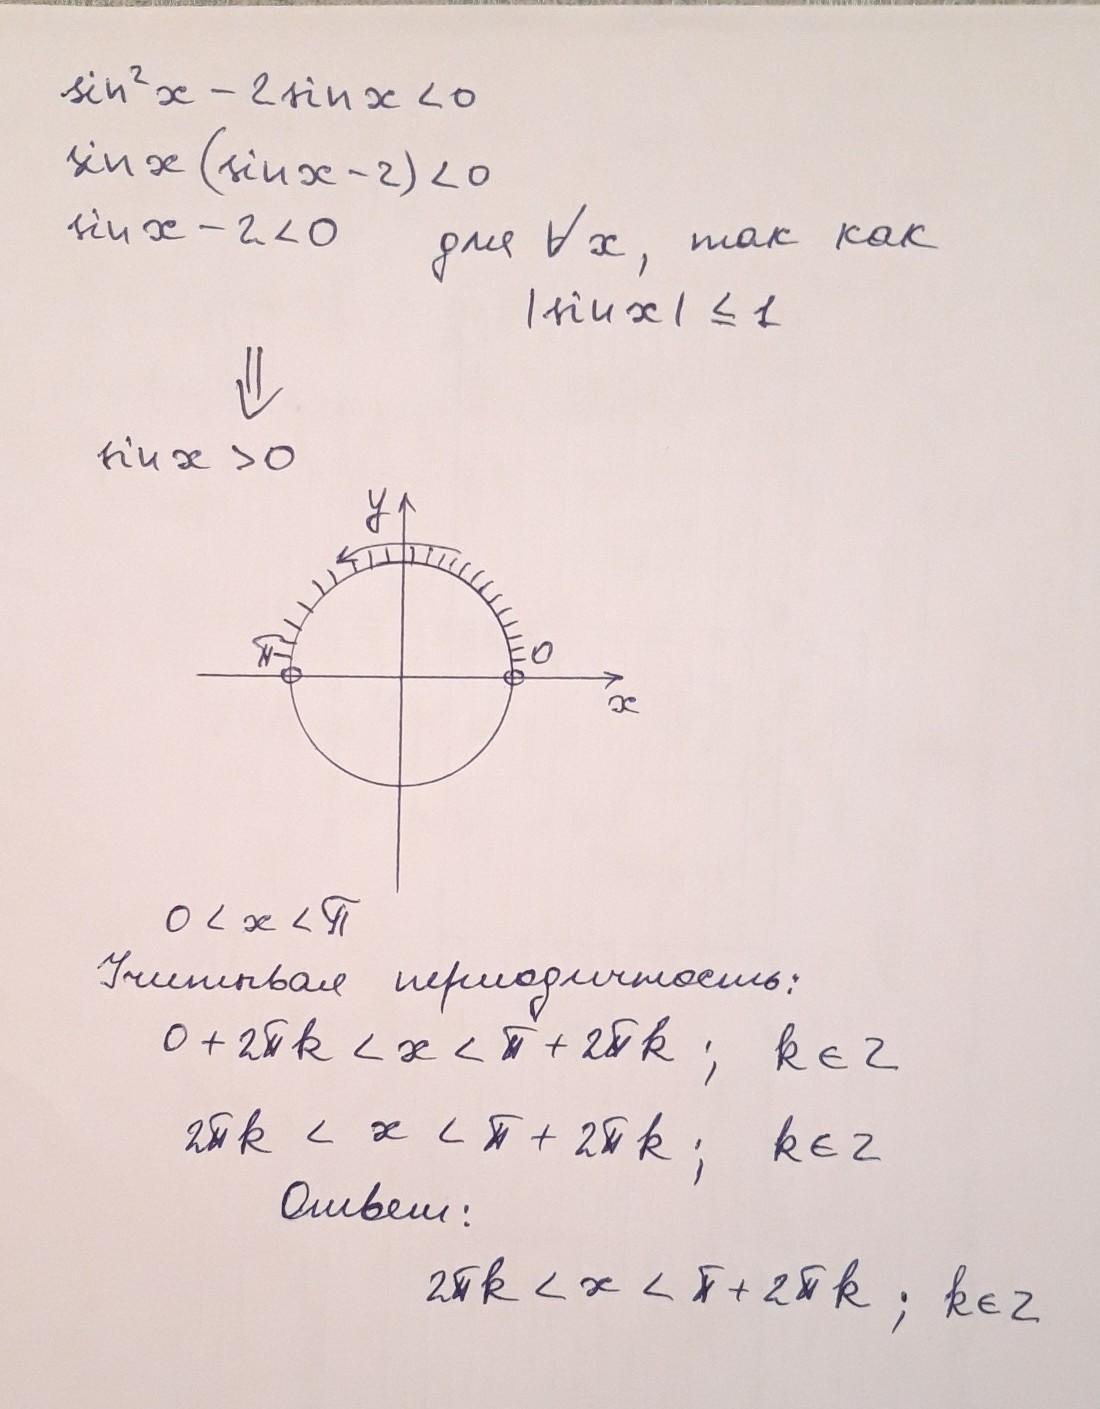 sin²x - 2sinx < 0
sinx (sinx - 2) < 0
sinx - 2 < 0 для ∀x, так как
|sinx| ≤ 1
⇓
sinx > 0
y
π 0
x
0 < x < π
Учитывая периодичность:
0 + 2πk < x < π + 2πk ; k ∈ Z
2πk < x < π + 2πk ; k ∈ Z
Ответ:
2πk < x < π + 2πk ; k ∈ Z